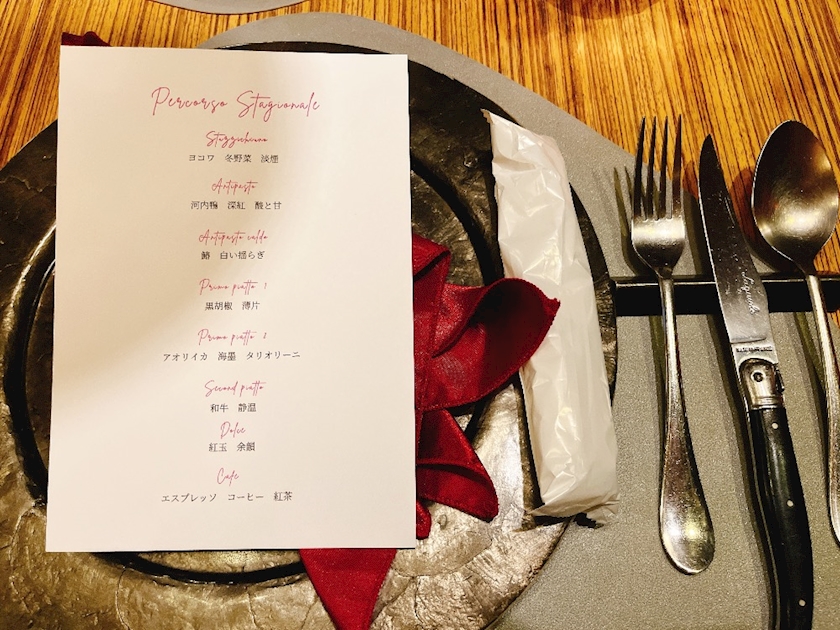 Percorso Stagionale
Stuzzichino
ヨコワ 冬野菜 淡煙
Antipasto
河内鴨 深紅 酸と甘
Antipasto caldo
鰆 白い揺らぎ
Primo piatto 1
黒胡椒 薄片
Primo piatto 2
アオリイカ 海墨 タリオリーニ
Second piatto
和牛 静温
Dolce
紅玉 余韻
Cafe
エスプレッソ コーヒー 紅茶
Laguiole